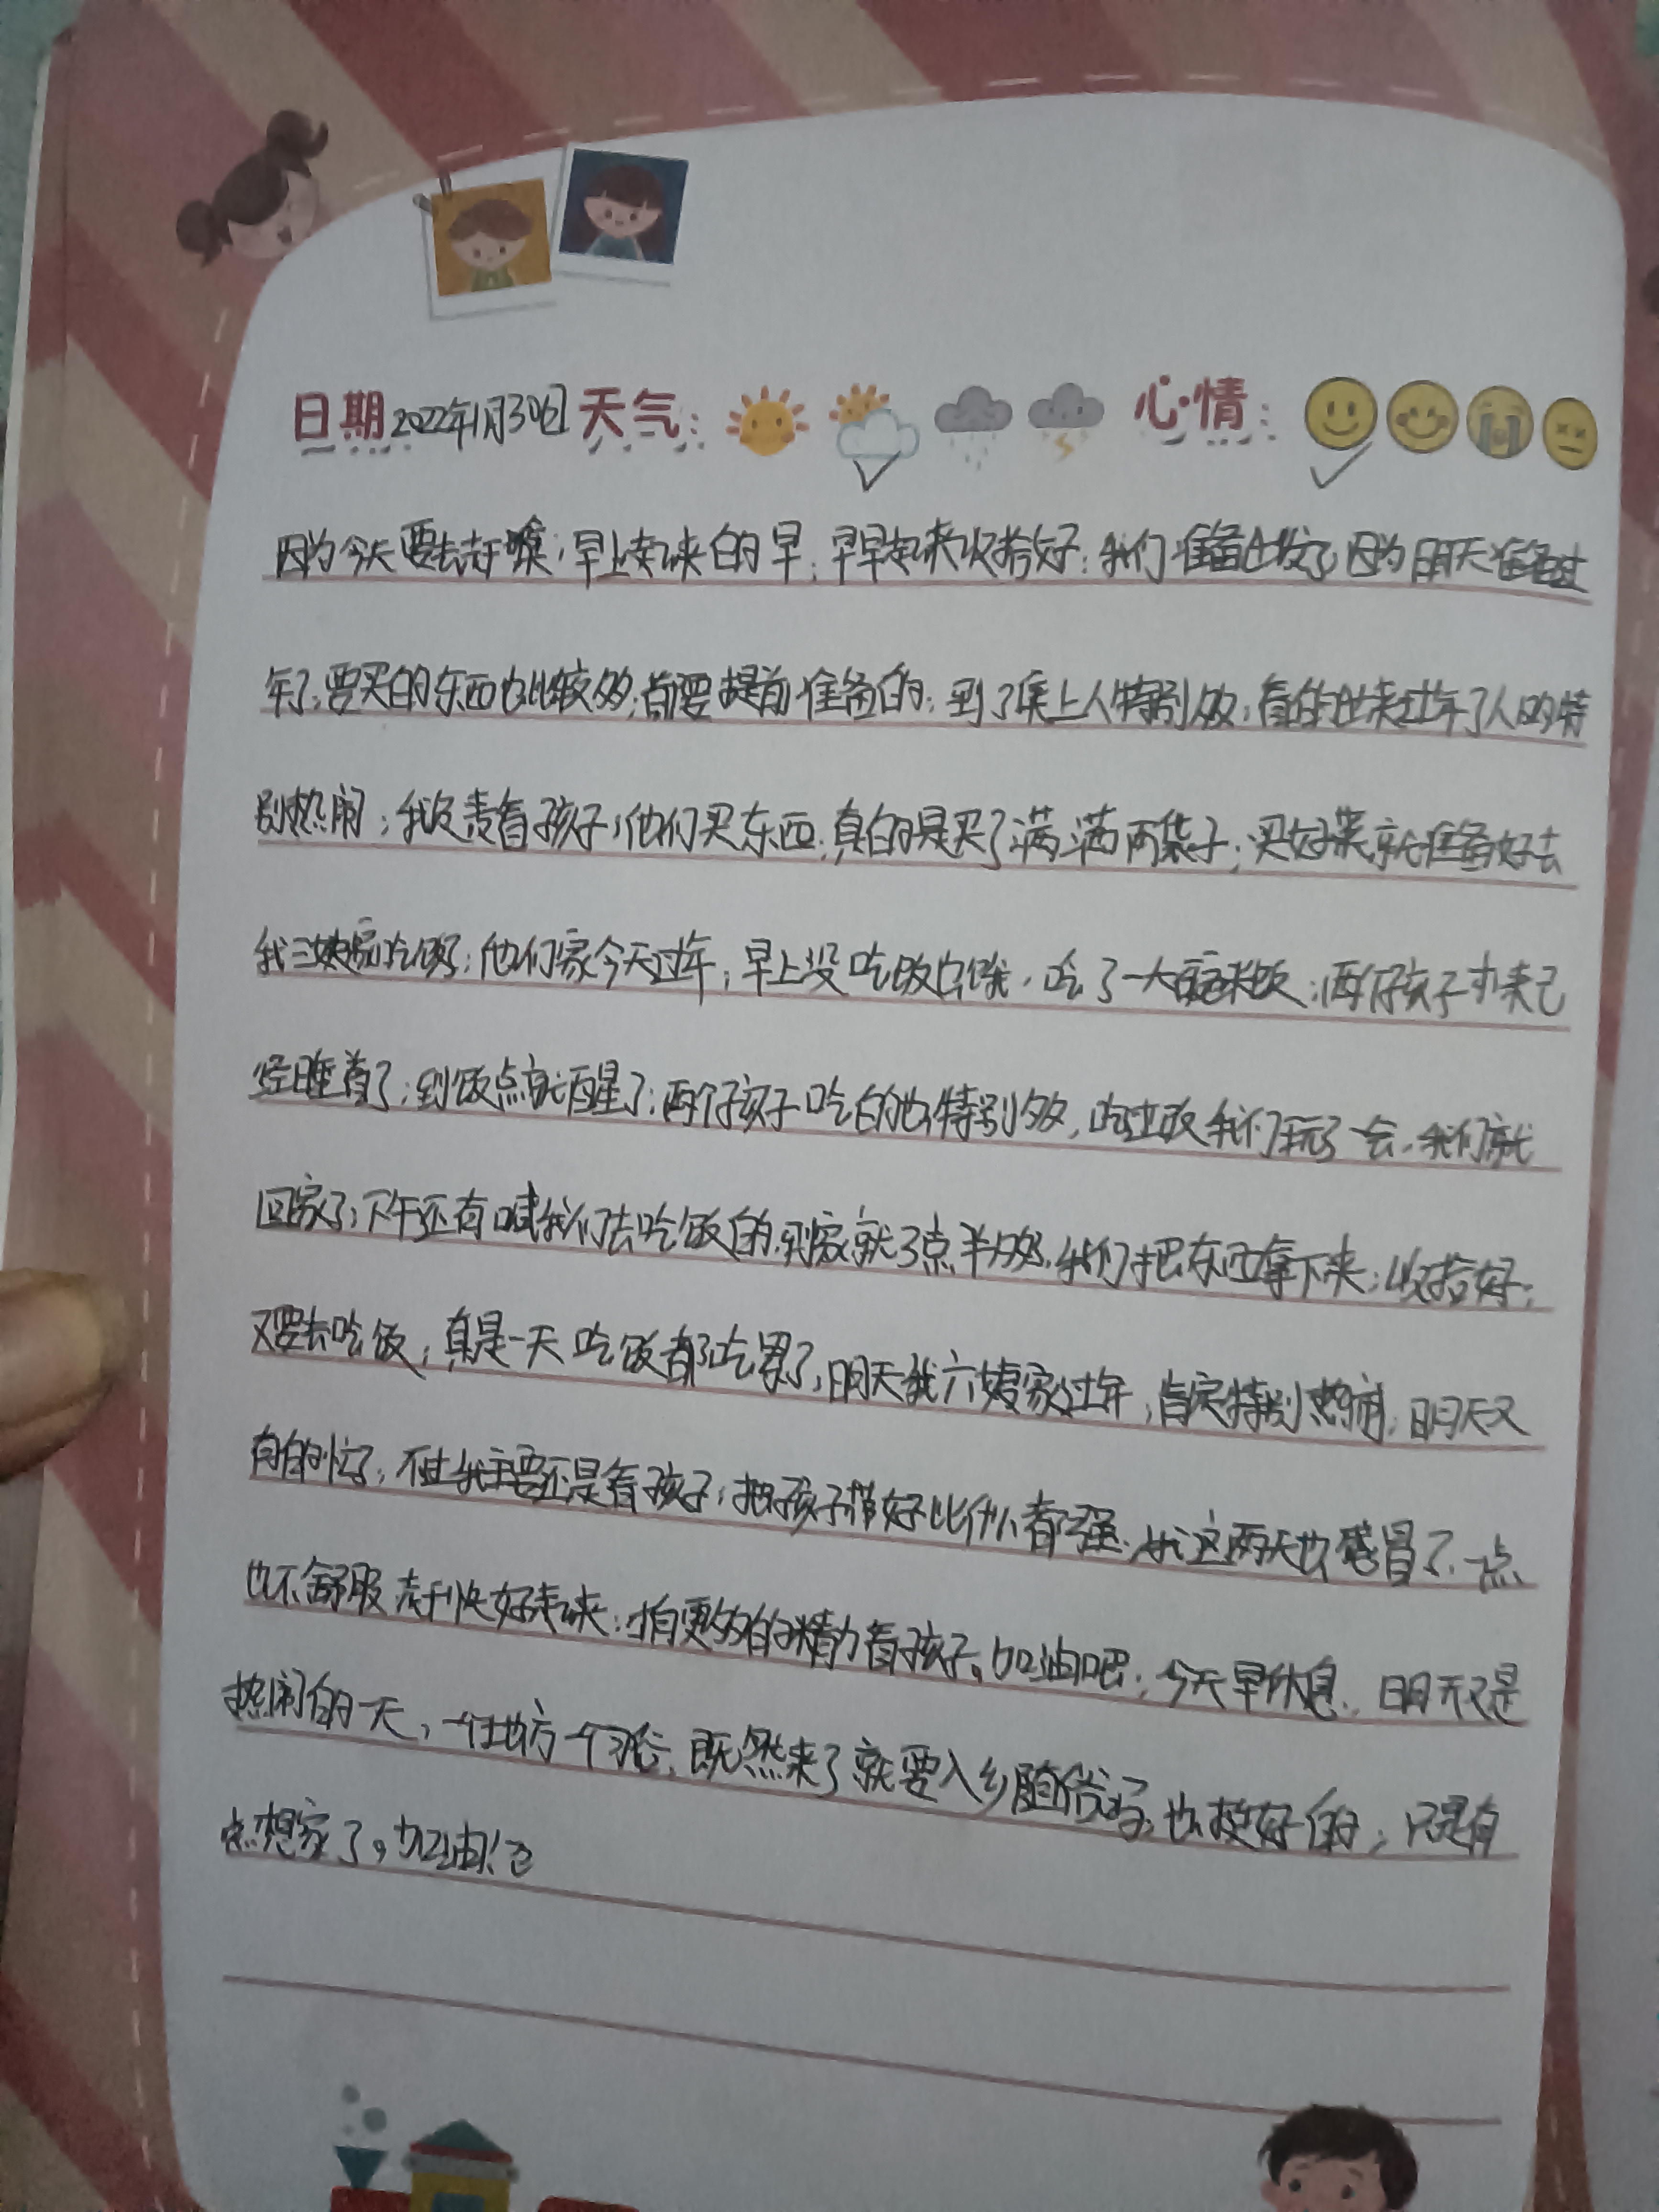 日期2022年1月30日天气: 心情:
因为今天要去赶喉,早上起来的早,早早起来收拾好,我们准备出发了因为明天准备过
年了,要买的东西也比较多,都要提前准备的,到了集上人特别多,看的出来过年了人的特
别热闹,我负责看孩子,他们买东西,真的是买了满满两袋子,买好菜就准备好去
我三嫂家吃饭了,他们家今天过年,早上没吃饭也饿,吃了一大碗米饭,两个孩子本来已
经睡着了,到饭点就醒了,两个孩子吃的也特别多,吃过饭我们玩了一会,我们就
回家了,下午还有喊我们去吃饭的,到家就3点半多,我们把东西拿下来,收拾好,
又要去吃饭,真是一天吃饭都吃累了,明天我六嫂家过年,肯定特别热闹,明天又
有的忙了,不过我主要还是看孩子,把孩子带好比什么都强.我这两天也感冒了.一点
也不舒服赶快好起来,才有更多的精力看孩子。加油吧,今天早休息.明天又是
热闹的一天,一个地方一个习俗,既然来了就要入乡随俗了,也挺好的,只是有
点想家了。加油!